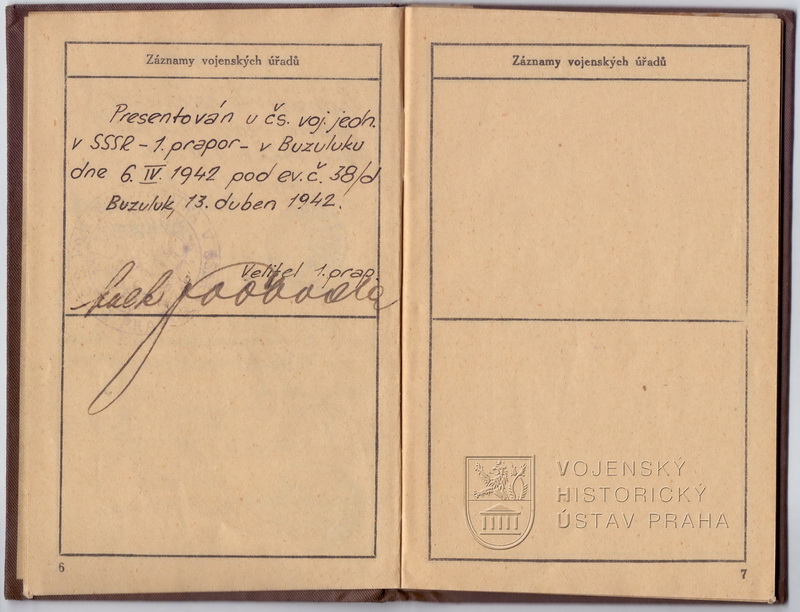 Záznamy vojenských úřadů
Presentován u čs. voj. jedn.
v SSSR - 1. prapor - v Buzuluku
dne 6. IV. 1942 pod ev. č. 38/d
Buzuluk, 13. duben 1942.
Velitel 1. prap.
Svoboda
6
Záznamy vojenských úřadů
VOJENSKÝ
HISTORICKÝ
ÚSTAV PRAHA
7